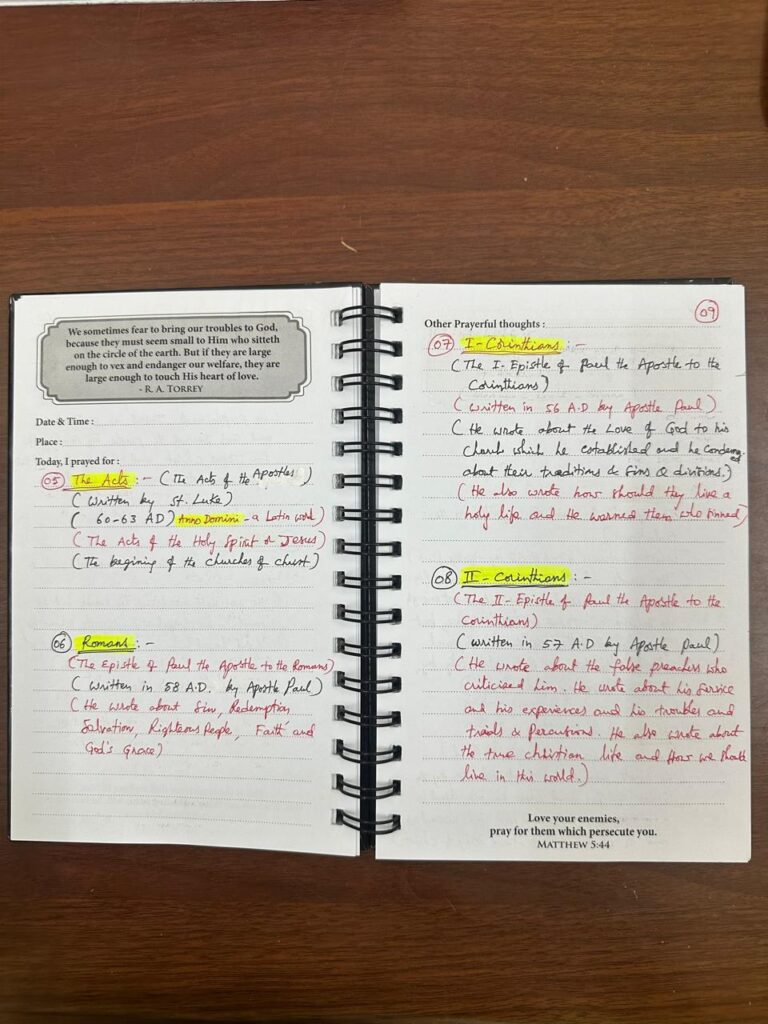 We sometimes fear to bring our troubles to God,
because they must seem small to Him who sitteth
on the circle of the earth. But if they are large
enough to vex and endanger our welfare, they are
large enough to touch His heart of love.
- R. A. TORREY
Date & Time :
Place :
Today, I prayed for :
05 The Acts :- (The Acts of the Apostles)
(Written by St. Luke)
(60-63 AD) Anno Domini - a Latin word)
(The Acts of the Holy Spirit of Jesus)
(The begining of the churches of christ)
06 Romans :-
(The Epistle of Paul the Apostle to the Romans)
(Written in 58 A.D. by Apostle Paul)
(He wrote about Sin, Redemption
Salvation, Righteous People, Faith and
God's Grace)
09
Other Prayerful thoughts :
07 I - Corinthians :-
(The I- Epistle of Paul the Apostle to the
Corinthians)
(Written in 56 A.D by Apostle Paul)
(He wrote about the Love of God to his
Church which he established and he
about their traditions & Sins & divisions.)
(He also wrote how should they live a
holy life and He warned them who sinned)
08 II - Corinthians :-
(The II- Epistle of Paul the Apostle to the
Corinthians)
(Written in 57 A.D by Apostle Paul)
(He wrote about the false preachers who
criticised him. He wrote about his Service
and his experiences and his troubles and
trials & . He also wrote about
the true christian life and How we should
live in this world.)
Love your enemies,
pray for them which persecute you.
MATTHEW 5:44